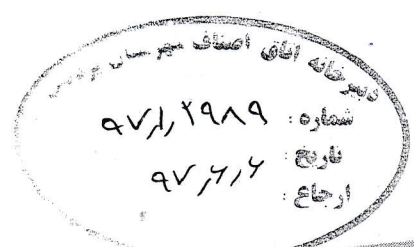 دبیرخانه اتاق اصناف شهرستان
شماره: ۹۷/ر/۲۹۸۹
تاریخ: ۹۷/۶/۶
ارجاع: